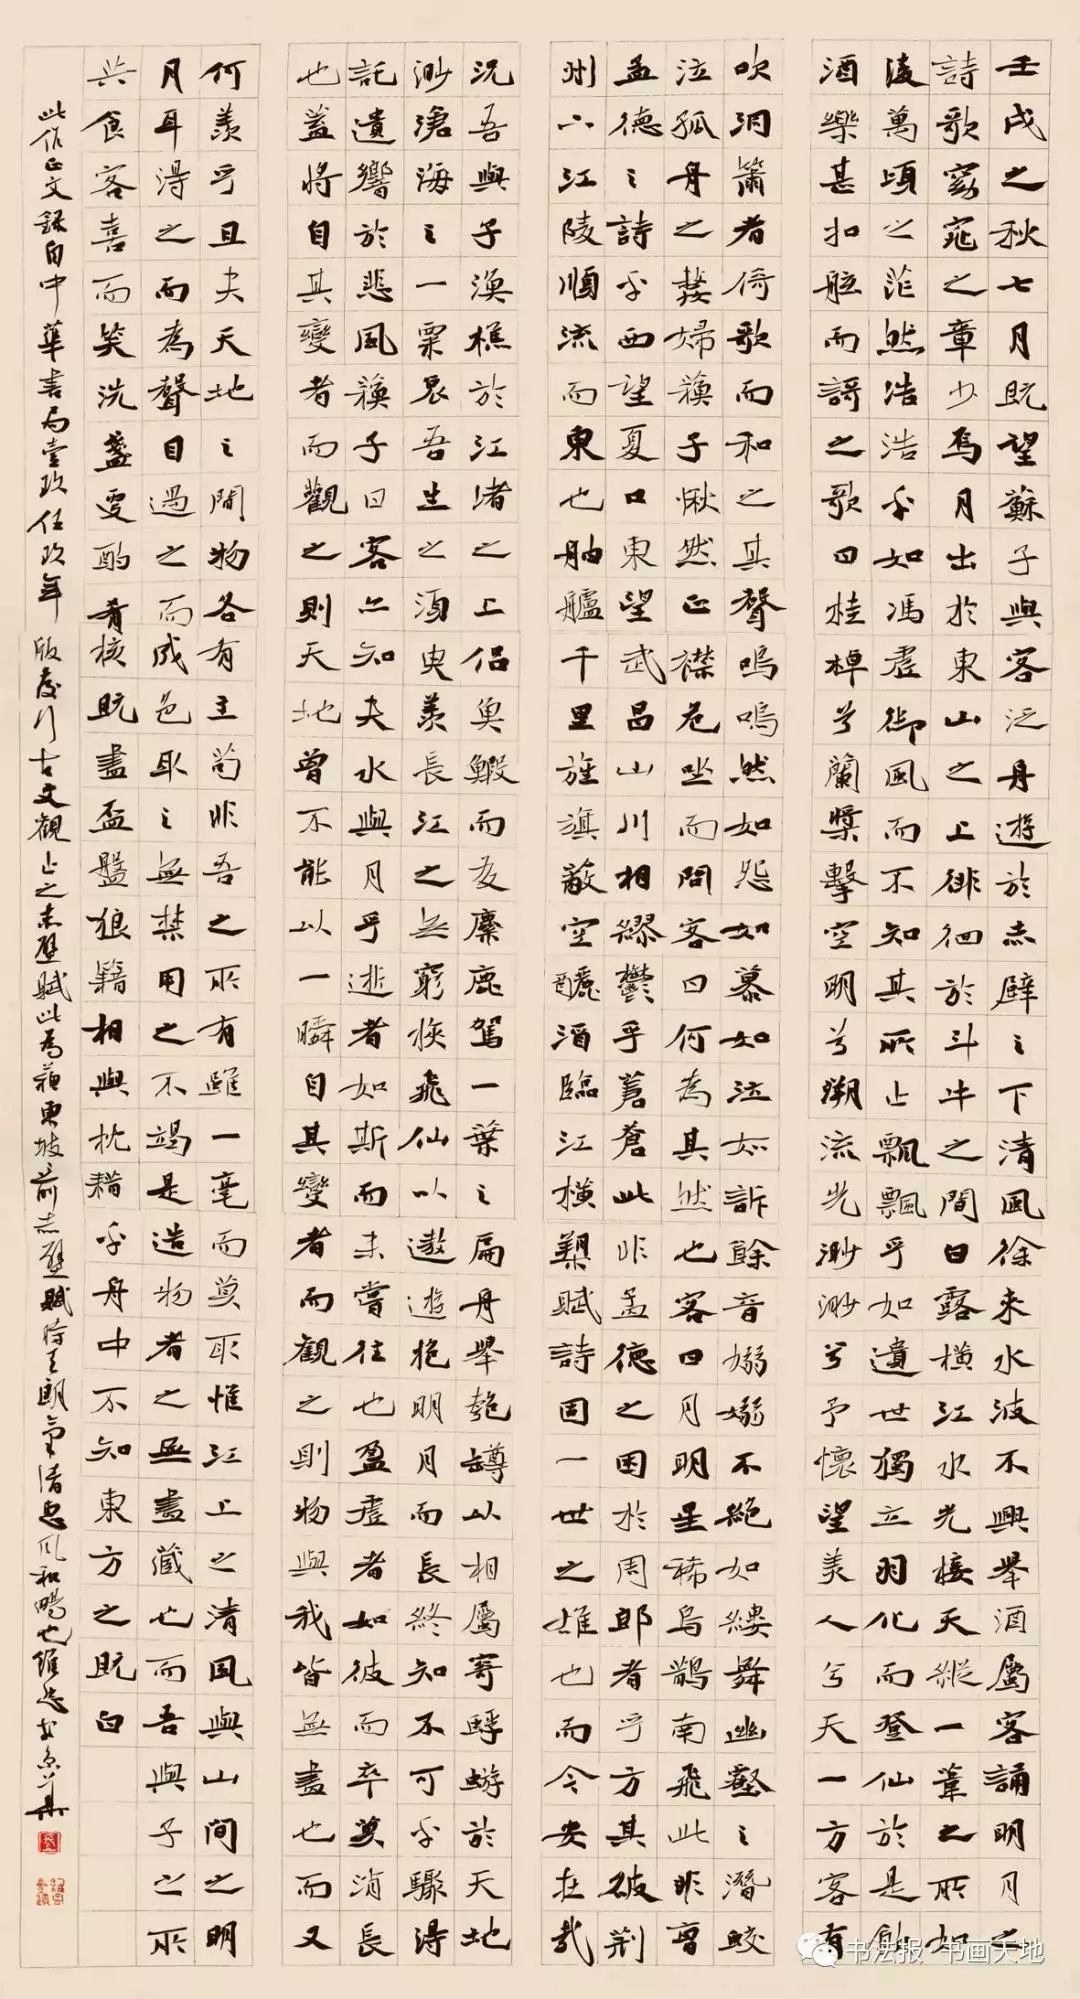 壬戌之秋七月既望蘇子與客泛舟遊於赤壁之下清風徐来水波不興舉酒屬客誦明月之
詩歌窈窕之章少焉月出於東山之上徘徊於斗牛之間白露橫江水光接天縱一葦之所如
陵萬頃之茫然浩浩乎如馮虛御風而不知其所止飄飄乎如遺世獨立羽化而登仙於是飲
酒樂甚扣舷而謌之歌曰桂棹兮蘭槳擊空明兮溯流光渺渺兮予懷望美人兮天一方客有
吹洞簫者倚歌而和之其聲嗚嗚然如怨如慕如泣如訴餘音嫋嫋不絕如縷舞幽壑之潛蛟
泣孤舟之嫠婦蘇子愀然正襟危坐而問客曰何為其然也客曰月明星稀烏鵲南飛此非曹
孟德之詩乎西望夏口東望武昌山川相繆鬱乎蒼蒼此非孟德之困於周郎者乎方其破荊
州下江陵順流而東也舳艫千里旌旗蔽空釃酒臨江橫槊賦詩固一世之雄也而今安在哉
況吾與子漁樵於江渚之上侶魚鰕而友麋鹿駕一葉之扁舟舉匏罇以相屬寄蜉蝣於天地
渺滄海之一粟哀吾生之湏臾羨長江之無窮挾飛仙以遨遊抱明月而長終知不可乎驟得
託遺響於悲風蘇子曰客亦知夫水與月乎逝者如斯而未嘗往也盈虛者如彼而卒莫消長
也蓋將自其變者而觀之則天地曾不能以一瞬自其變者而觀之則物與我皆無盡也而又
何羨乎且夫天地之間物各有主苟非吾之所有雖一毫而莫取惟江上之清風與山間之明
月耳得之而為聲目遇之而成色取之無禁用之不竭是造物者之無盡藏也而吾與子之所
共食客喜而笑洗盞更酌肴核既盡盃盤狼籍相與枕藉乎舟中不知東方之既白
此作正文録自中華書局壹玖伍玖年版發行古文觀止之赤壁賦此為蘇東坡前赤壁賦時天朗氣清惠風和暢也維忠書
书法报 书画天地